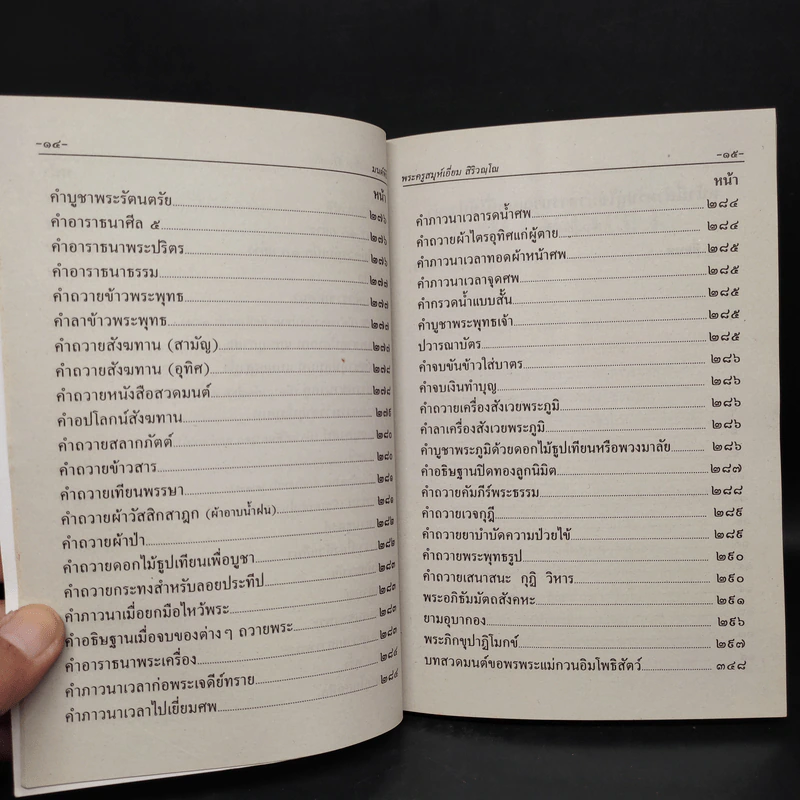 -๑๔-
มนต์พิ
หน้า
คำบูชาพระรัตนตรัย ๒๗๖
คำอาราธนาศีล ๕ ๒๗๖
คำอาราธนาพระปริตร ๒๗๖
คำอาราธนาธรรม ๒๗๗
คำถวายข้าวพระพุทธ ๒๗๗
คำลาข้าวพระพุทธ ๒๗๗
คำถวายสังฆทาน (สามัญ) ๒๗๗
คำถวายสังฆทาน (อุทิศ) ๒๗๘
คำถวายหนังสือสวดมนต์ ๒๗๘
คำอปโลกน์สังฆทาน ๒๗๙
คำถวายสลากภัตต์ ๒๘๐
คำถวายข้าวสาร ๒๘๐
คำถวายเทียนพรรษา ๒๘๑
คำถวายผ้าวัสสิกสาฎก (ผ้าอาบน้ำฝน) ๒๘๑
คำถวายผ้าป่า ๒๘๒
คำถวายดอกไม้ธูปเทียนเพื่อบูชา ๒๘๒
คำถวายกระทงสำหรับลอยประทีป ๒๘๓
คำภาวนาเมื่อยกมือไหว้พระ ๒๘๓
คำอธิษฐานเมื่อจบของต่างๆ ถวายพระ ๒๘๓
คำอาราธนาพระเครื่อง ๒๘๓
คำภาวนาเวลาก่อพระเจดีย์ทราย ๒๘๔
คำภาวนาเวลาไปเยี่ยมศพ ๒๘๔
พระครูสมุห์เอี่ยม สิริวณฺโณ
-๑๕-
หน้า
คำภาวนาเวลารดน้ำศพ ๒๘๔
คำถวายผ้าไตรอุทิศแก่ผู้ตาย ๒๘๔
คำภาวนาเวลาทอดผ้าหน้าศพ ๒๘๕
คำภาวนาเวลาจุดศพ ๒๘๕
คำกรวดน้ำแบบสั้น ๒๘๕
คำบูชาพระพุทธเจ้า ๒๘๕
ปวารณาบัตร ๒๘๕
คำจบขันข้าวใส่บาตร ๒๘๖
คำจบเงินทำบุญ ๒๘๖
คำถวายเครื่องสังเวยพระภูมิ ๒๘๖
คำลาเครื่องสังเวยพระภูมิ ๒๘๖
คำบูชาพระภูมิด้วยดอกไม้ธูปเทียนหรือพวงมาลัย ๒๘๖
คำอธิษฐานปิดทองลูกนิมิต ๒๘๗
คำถวายคัมภีร์พระธรรม ๒๘๘
คำถวายเวจกุฎี ๒๘๙
คำถวายยาบำบัดความป่วยไข้ ๒๘๙
คำถวายพระพุทธรูป ๒๙๐
คำถวายเสนาสนะ กุฎิ วิหาร ๒๙๐
พระอภิธัมมัตถสังคหะ ๒๙๑
ยามอุบากอง ๒๙๖
พระภิกขุปาฏิโมกข์ ๒๙๗
บทสวดมนต์ขอพรพระแม่กวนอิมโพธิสัตว์ ๓๔๘